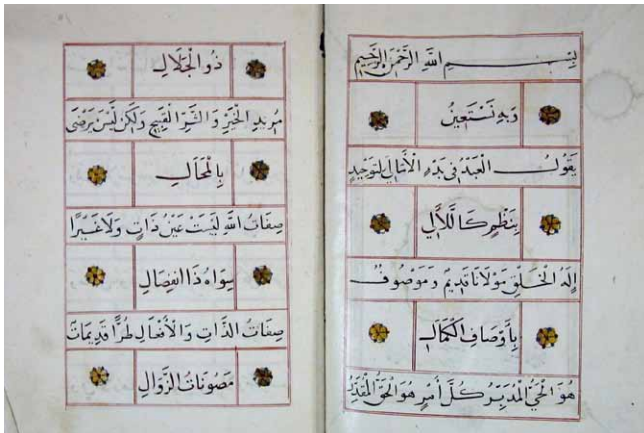 بِسْمِ اللَّهِ الرَّحْمَنِ الرَّحِيمِ
وَبِهِ نَسْتَعِينُ
يَقُولُ الْعَبْدُ فِي بَدْءِ الْأَمَالِي لِتَوْحِيدٍ
بِنَظْمٍ كَاللَّآلِي
إِلَهُ الْخَلْقِ مَوْلَانَا قَدِيمٌ وَمَوْصُوفٌ
بِأَوْصَافِ الْكَمَالِ
هُوَ الْحَيُّ الْمُدَبِّرُ كُلَّ أَمْرٍ هُوَ الْحَقُّ الْمُقَدِّرُ
ذُو الْجَلَالِ
مُرِيدُ الْخَيْرِ وَالشَّرِّ الْقَبِيحِ وَلَكِنْ لَيْسَ يَرْضَى
بِالْمُحَالِ
صِفَاتُ اللَّهِ لَيْسَتْ عَيْنَ ذَاتٍ وَلَا غَيْرًا
سِوَاهُ ذَا انْفِصَالِ
صِفَاتُ الذَّاتِ وَالْأَفْعَالِ طُرًّا قَدِيمَاتٌ
مَصُونَاتُ الزَّوَالِ